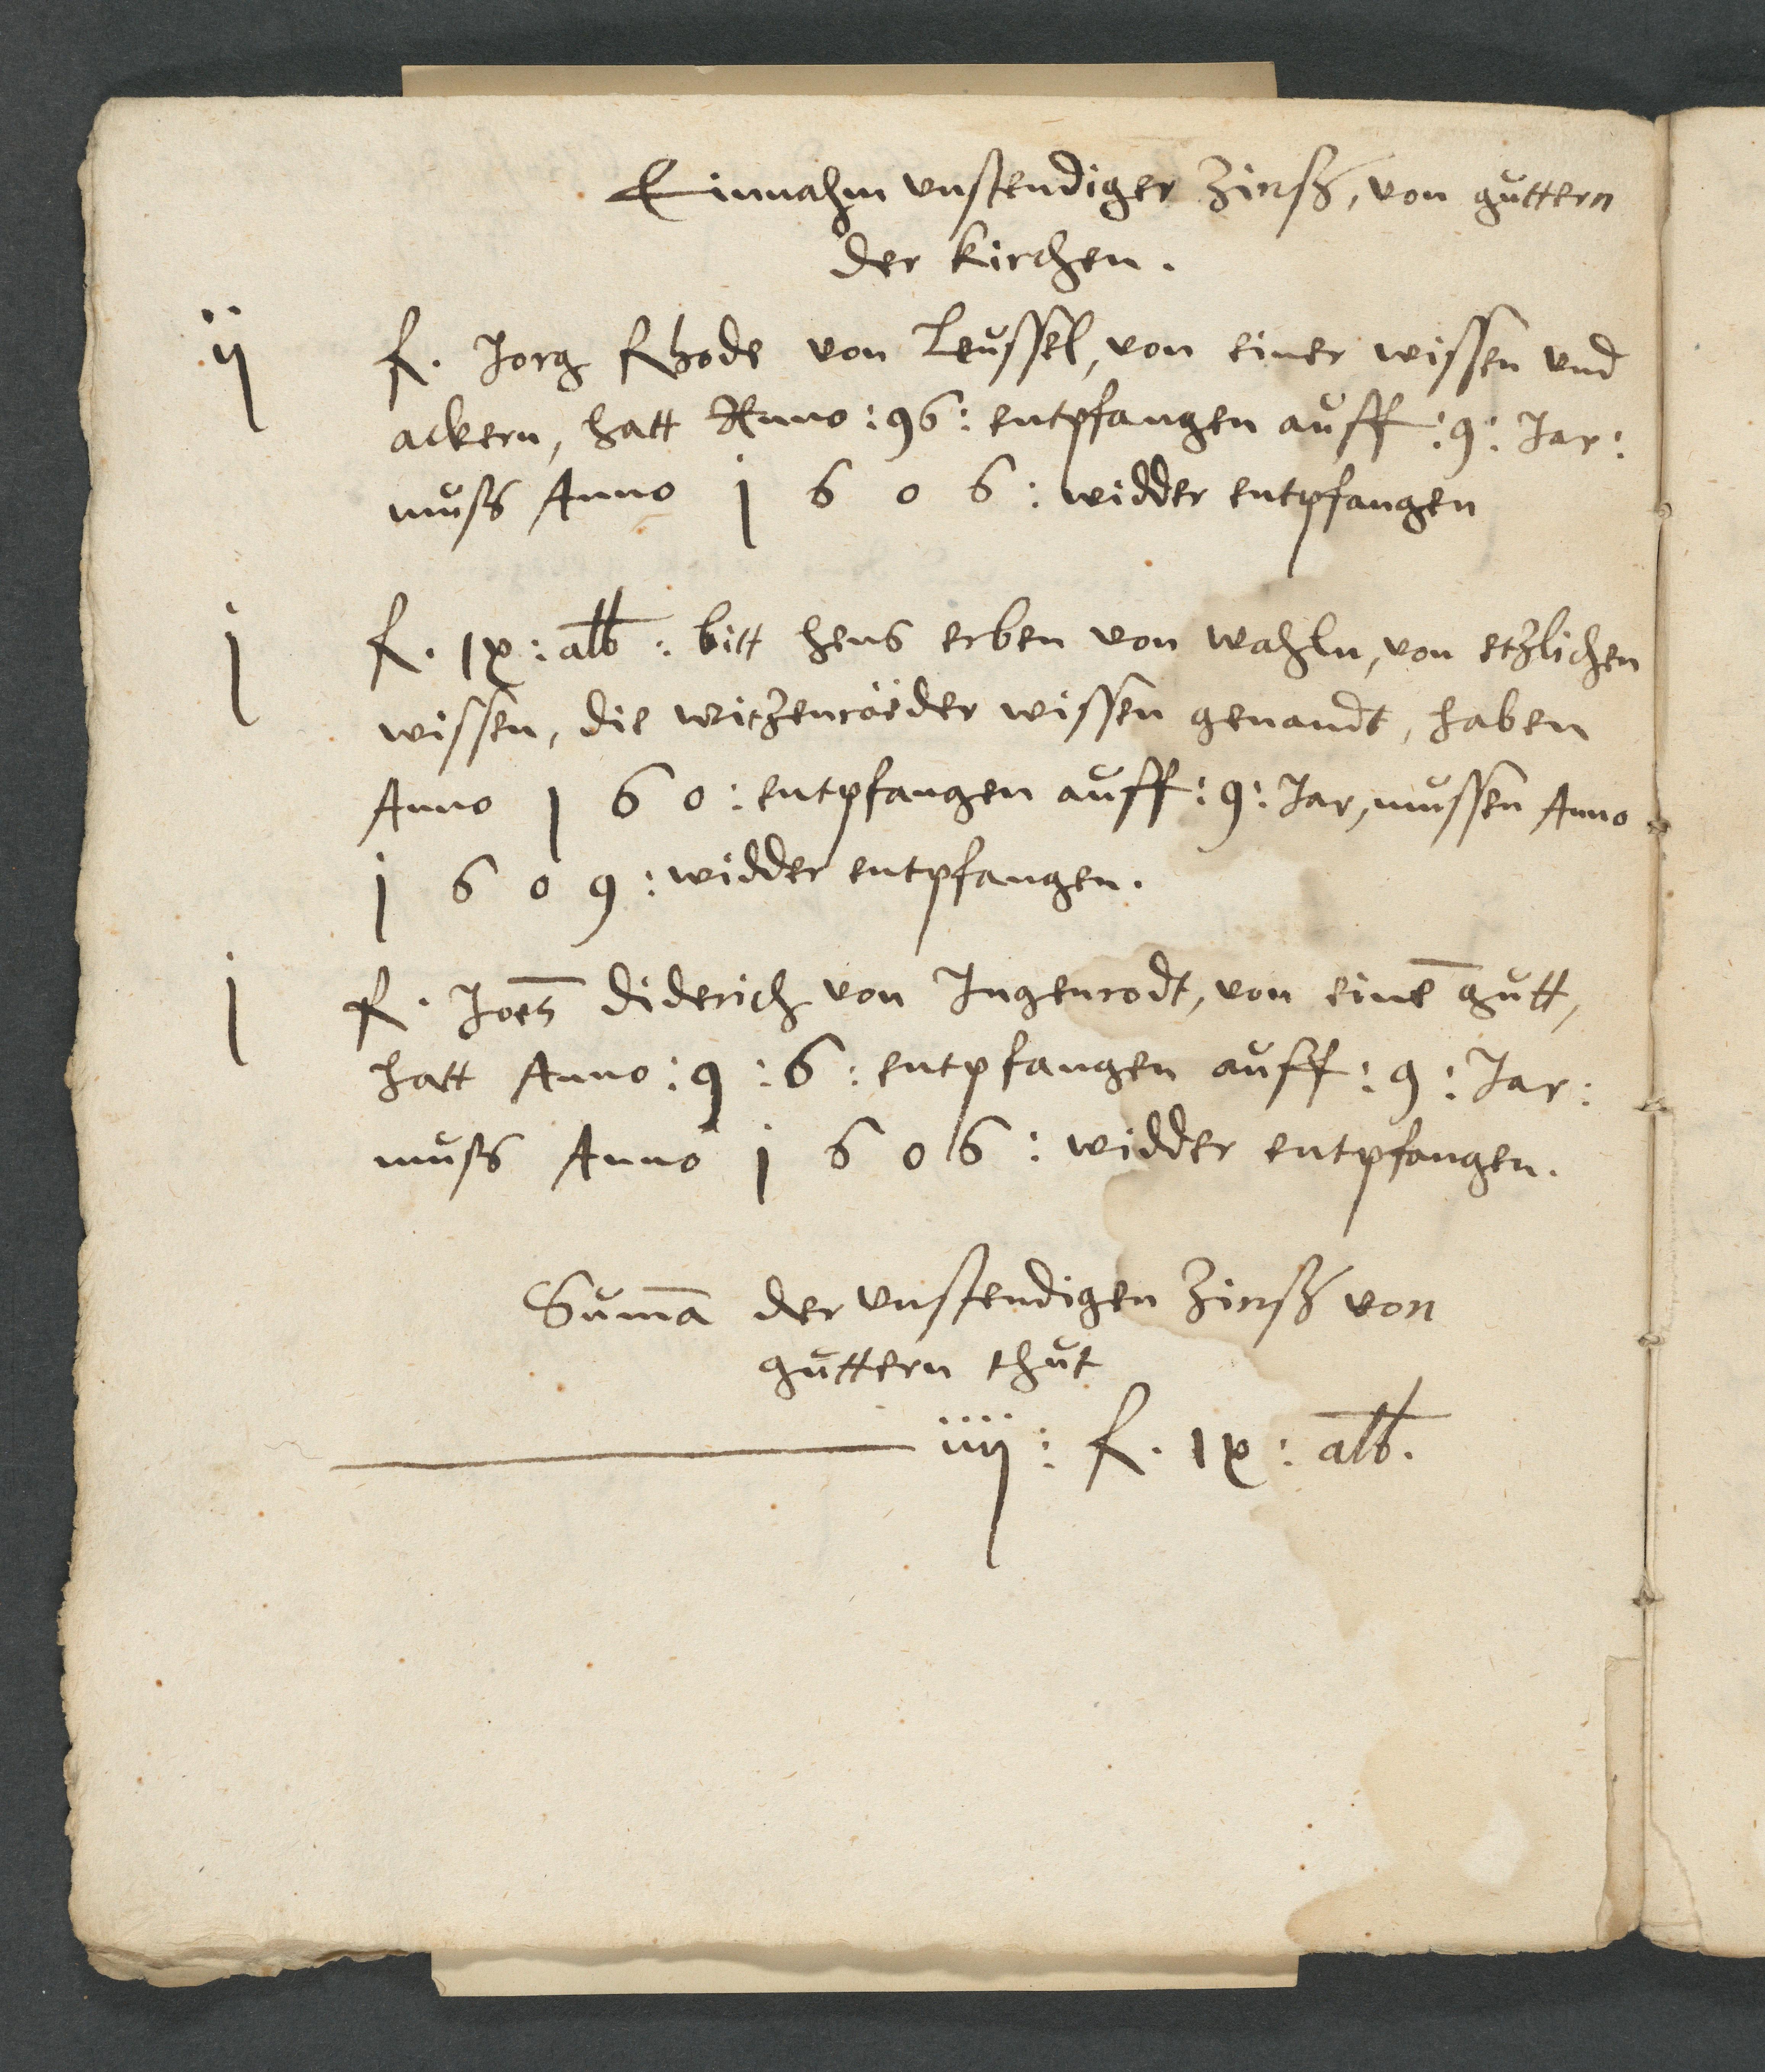 Einnahm unstendiger Zinß, von guttern
der kirchen.
ij f. Jorg Rhode von Leussel, von einer wissen und
ackern, hatt Anno : 96 : entpfangen auff : 9 : Jar :
muß Anno j 6 0 6 : widder entpfangen
j f. ix : alb : bitt hens erben von wahln, von etzlichen
wissen, die witzenröeder wissen genandt, haben
Anno j 6 0 : entpfangen auff : 9 : Jar, mussen Anno
j 6 0 9 : widder entpfangen.
j f. Joes Diderich von Ingenrodt, von eine̅ gutt,
hatt Anno : 9 : 6 : entpfangen auff : 9 : Jar :
muß Anno j 6 0 6 : widder entpfangen.
Suma̅ der unstendigen Zinß von
guttern thut
iiij : f. ix : alb.